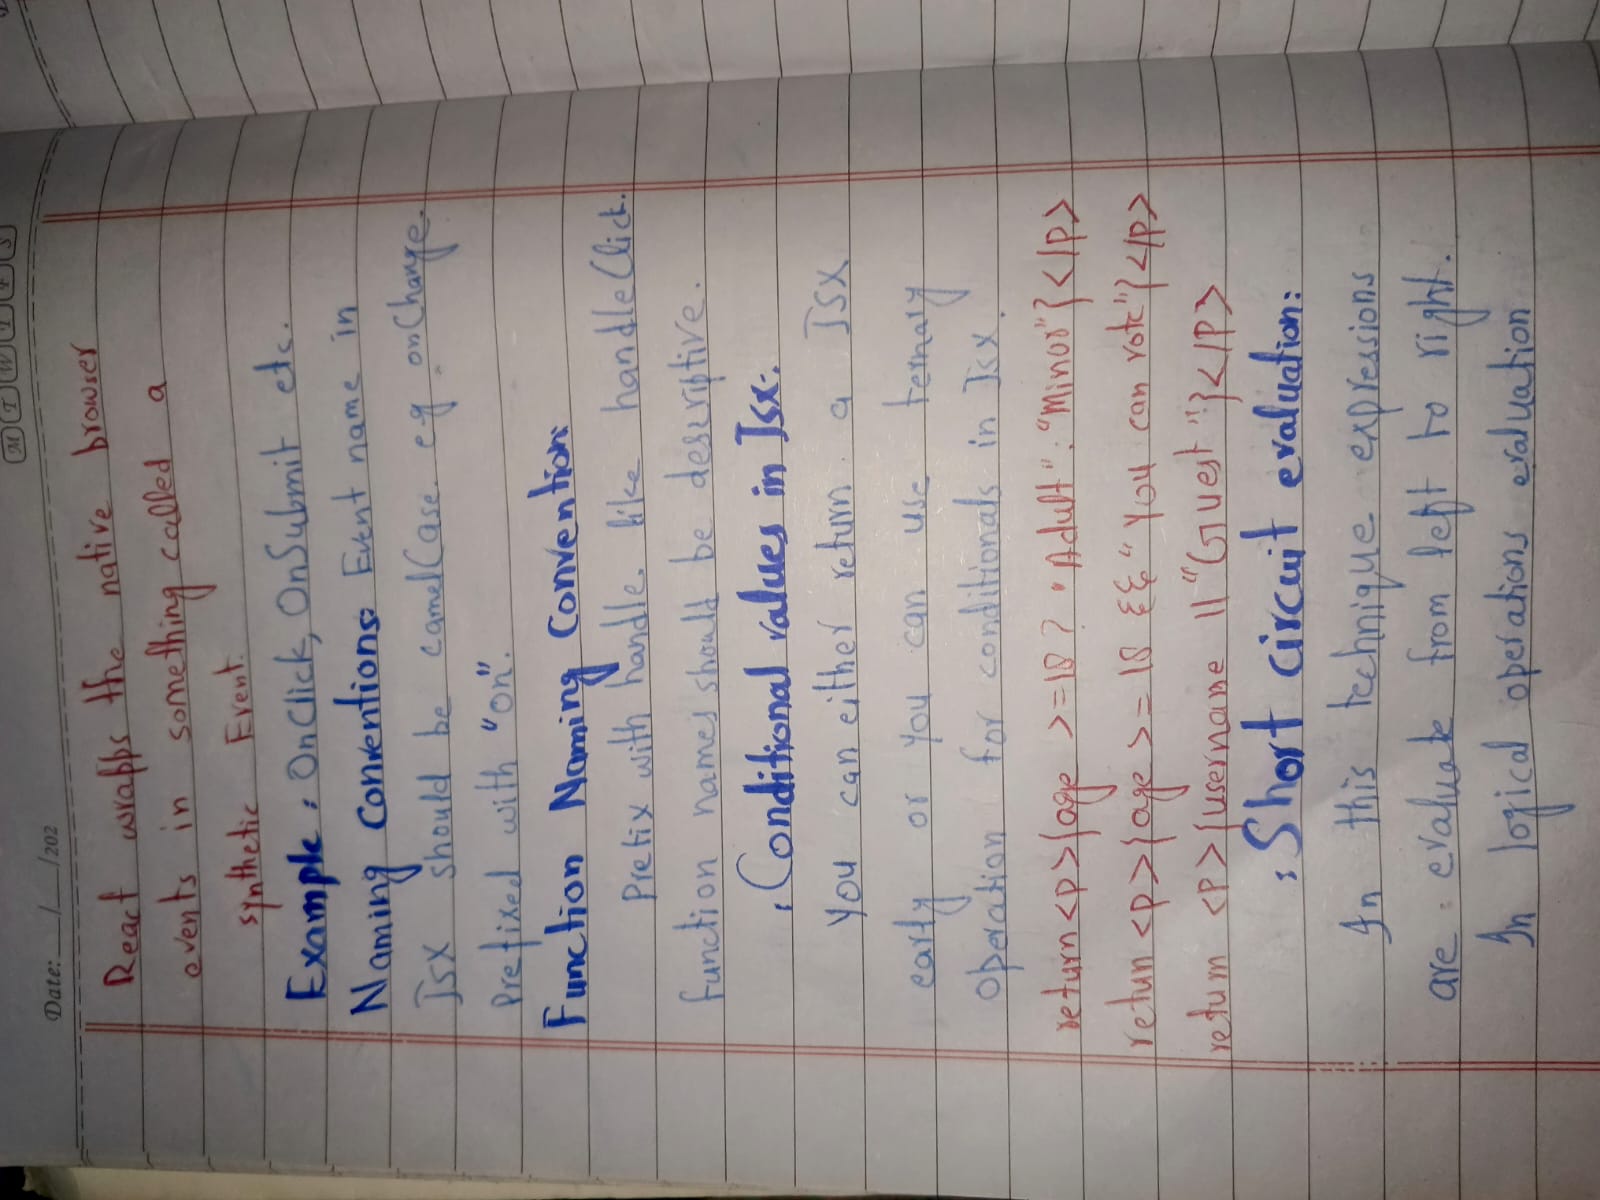 M T W T F S
Date: __/__/202
React wrapps the native browser
events in something called a
synthetic Event.
Example: OnClick, OnSubmit etc.
Naming Conventions: Event name in
Jsx should be camelCase. eg onChange.
Prefixed with "on".
Function Naming Convention:
Prefix with handle. like handleClick.
function names should be descriptive.
: Conditional values in Jsx:.
You can either return a JSX
early or you can use ternary
operation for conditionals in Jsx.
return <p>{age >=18? "Adult": "Minor"}</p>
return <p>{age >= 18 && "You can vote"}</p>
return <p>{username || "Guest"}</p>
: Short circuit evaluation:
In this technique expressions
are : evaluate from left to right.
In logical operations evaluation